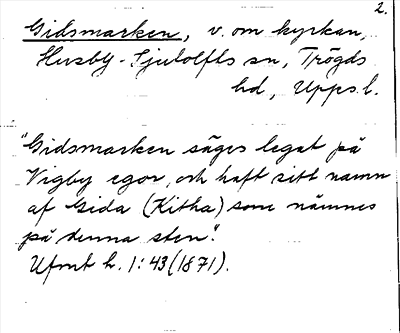 2.
Gidsmarken, v. om kyrkan,
Husby-Sjutolfts sn, Trögds
hd, Upps. l.
"Gidsmarken säges legat på
Vigby egor, och haft sitt namn
af Gida (Kitha) som nämnes
på denna sten".
Ufmt h. 1:43 (1871).